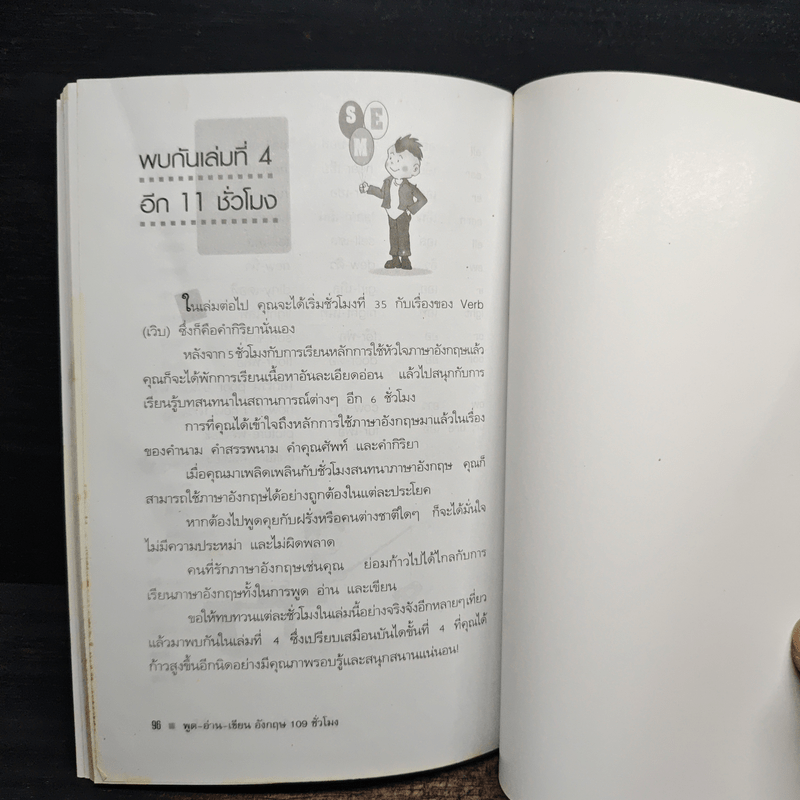 S E M
พบกันเล่มที่ 4
อีก 11 ชั่วโมง
ในเล่มต่อไป คุณจะได้เริ่มชั่วโมงที่ 35 กับเรื่องของ Verb
(เวิบ) ซึ่งก็คือคำกิริยานั่นเอง
หลังจาก 5 ชั่วโมงกับการเรียนหลักการใช้หัวใจภาษาอังกฤษแล้ว
คุณก็จะได้พักการเรียนเนื้อหาอันละเอียดอ่อน แล้วไปสนุกกับการ
เรียนรู้บทสนทนาในสถานการณ์ต่างๆ อีก 6 ชั่วโมง
การที่คุณได้เข้าใจถึงหลักการใช้ภาษาอังกฤษมาแล้วในเรื่อง
ของคำนาม คำสรรพนาม คำคุณศัพท์ และคำกิริยา
เมื่อคุณมาเพลิดเพลินกับชั่วโมงสนทนาภาษาอังกฤษ คุณก็
สามารถใช้ภาษาอังกฤษได้อย่างถูกต้องในแต่ละประโยค
หากต้องไปพูดคุยกับฝรั่งหรือคนต่างชาติใดๆ ก็จะได้มั่นใจ
ไม่มีความประหม่า และไม่ผิดพลาด
คนที่รักภาษาอังกฤษเช่นคุณ ย่อมก้าวไปได้ไกลกับการ
เรียนภาษาอังกฤษทั้งในการพูด อ่าน และเขียน
ขอให้ทบทวนแต่ละชั่วโมงในเล่มนี้อย่างจริงจังอีกหลายๆเที่ยว
แล้วมาพบกันในเล่มที่ 4 ซึ่งเปรียบเสมือนบันไดขั้นที่ 4 ที่คุณได้
ก้าวสูงขึ้นอีกนิดอย่างมีคุณภาพรอบรู้และสนุกสนานแน่นอน!
96 ■ พูด-อ่าน-เขียน อังกฤษ 109 ชั่วโมง